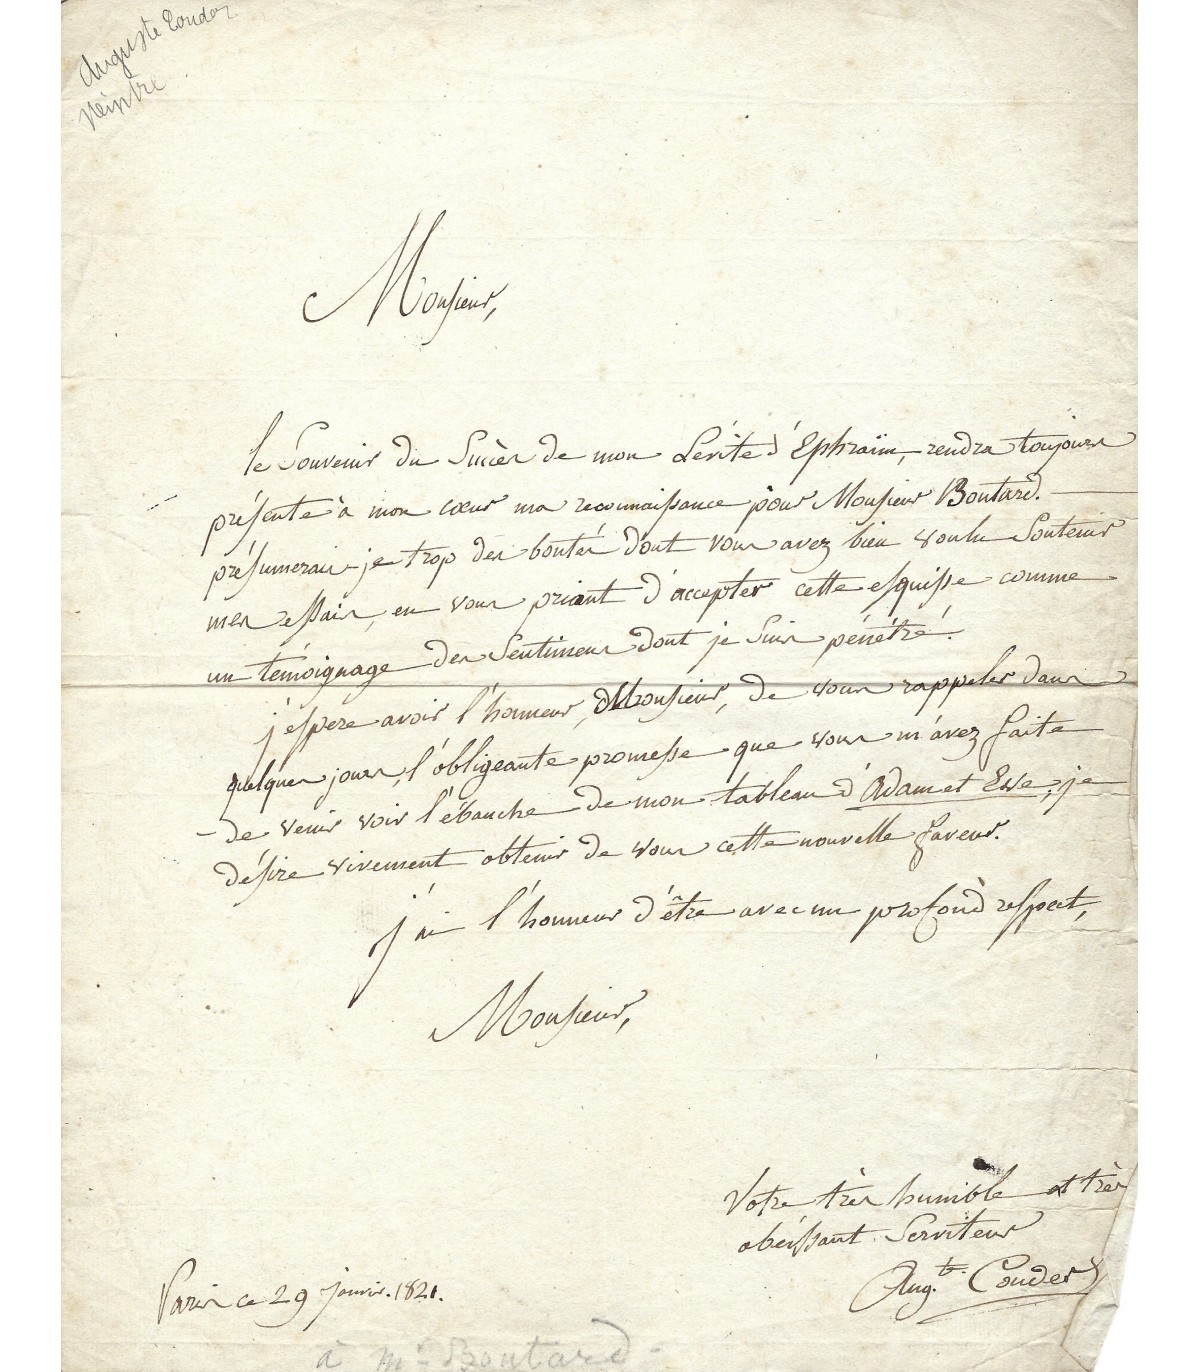 Auguste Couder
Peintre
Monsieur,
le Souvenir du Succès de mon Lévite d'Ephraïm, rendra toujours
présente à mon cœur ma reconnaissance pour Monsieur Boutard.
présumerais-je trop des bontés dont vous avez bien voulu Soutenir
mes essais, en vous priant d'accepter cette esquisse comme
un témoignage des Sentimens dont je Suis pénétré.
j'espere avoir l'honneur, Monsieur, de vous rappeler dans
quelques jours, l'obligeante promesse que vous m'avez faite
de venir voir l'ébauche de mon tableau d'Adam et Eve, je
désire vivement obtenir de vous cette nouvelle faveur.
j'ai l'honneur d'être avec un profond respect,
Monsieur,
Votre très humble et très
obéissant Serviteur
Aug.te Couder
Paris ce 29 janvier. 1821.
à Mr Boutard